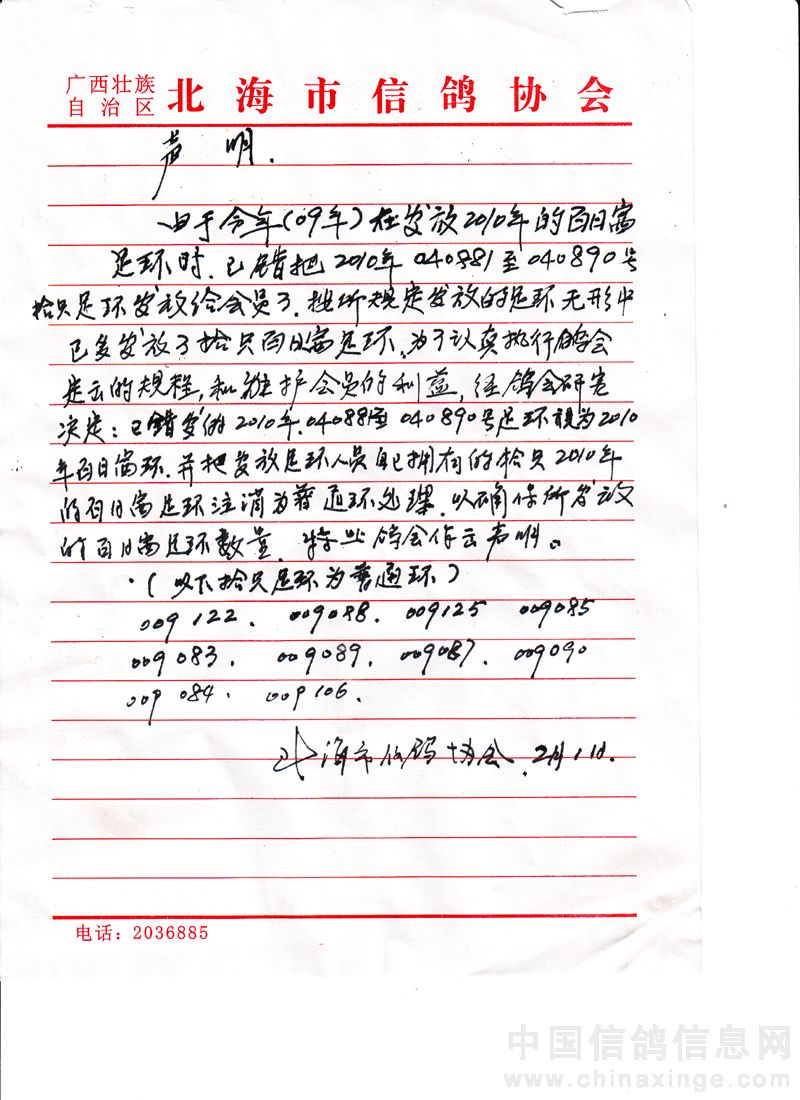 广西壮族
自治区 北海市信鸽协会
声 明.
由于今年(09年)在发放2010年的百日富
足环时.已错把2010年040881至040890号
拾只足环发放给会员了.按所规定发放的足环无形中
已多发放了拾只百日富足环.为了认真执行鸽会
定云的规程,和维护会员的利益,经鸽会研究
决定:已错发的2010年.040881至040890号足环视为2010
年百日富环.并把发放足环人员自己拥有的拾只2010年
的百日富足环注消为普通环处理.以确保所发放
的百日富足环数量.特此鸽会作云声明。
(以下拾只足环为普通环)
009122. 009088. 009125 009085
009083. 009089. 009087. 009090
009084. 009106.
北海市信鸽协会.2月1日.
电话:2036885
中国信鸽信息网
www.chinaxinge.com